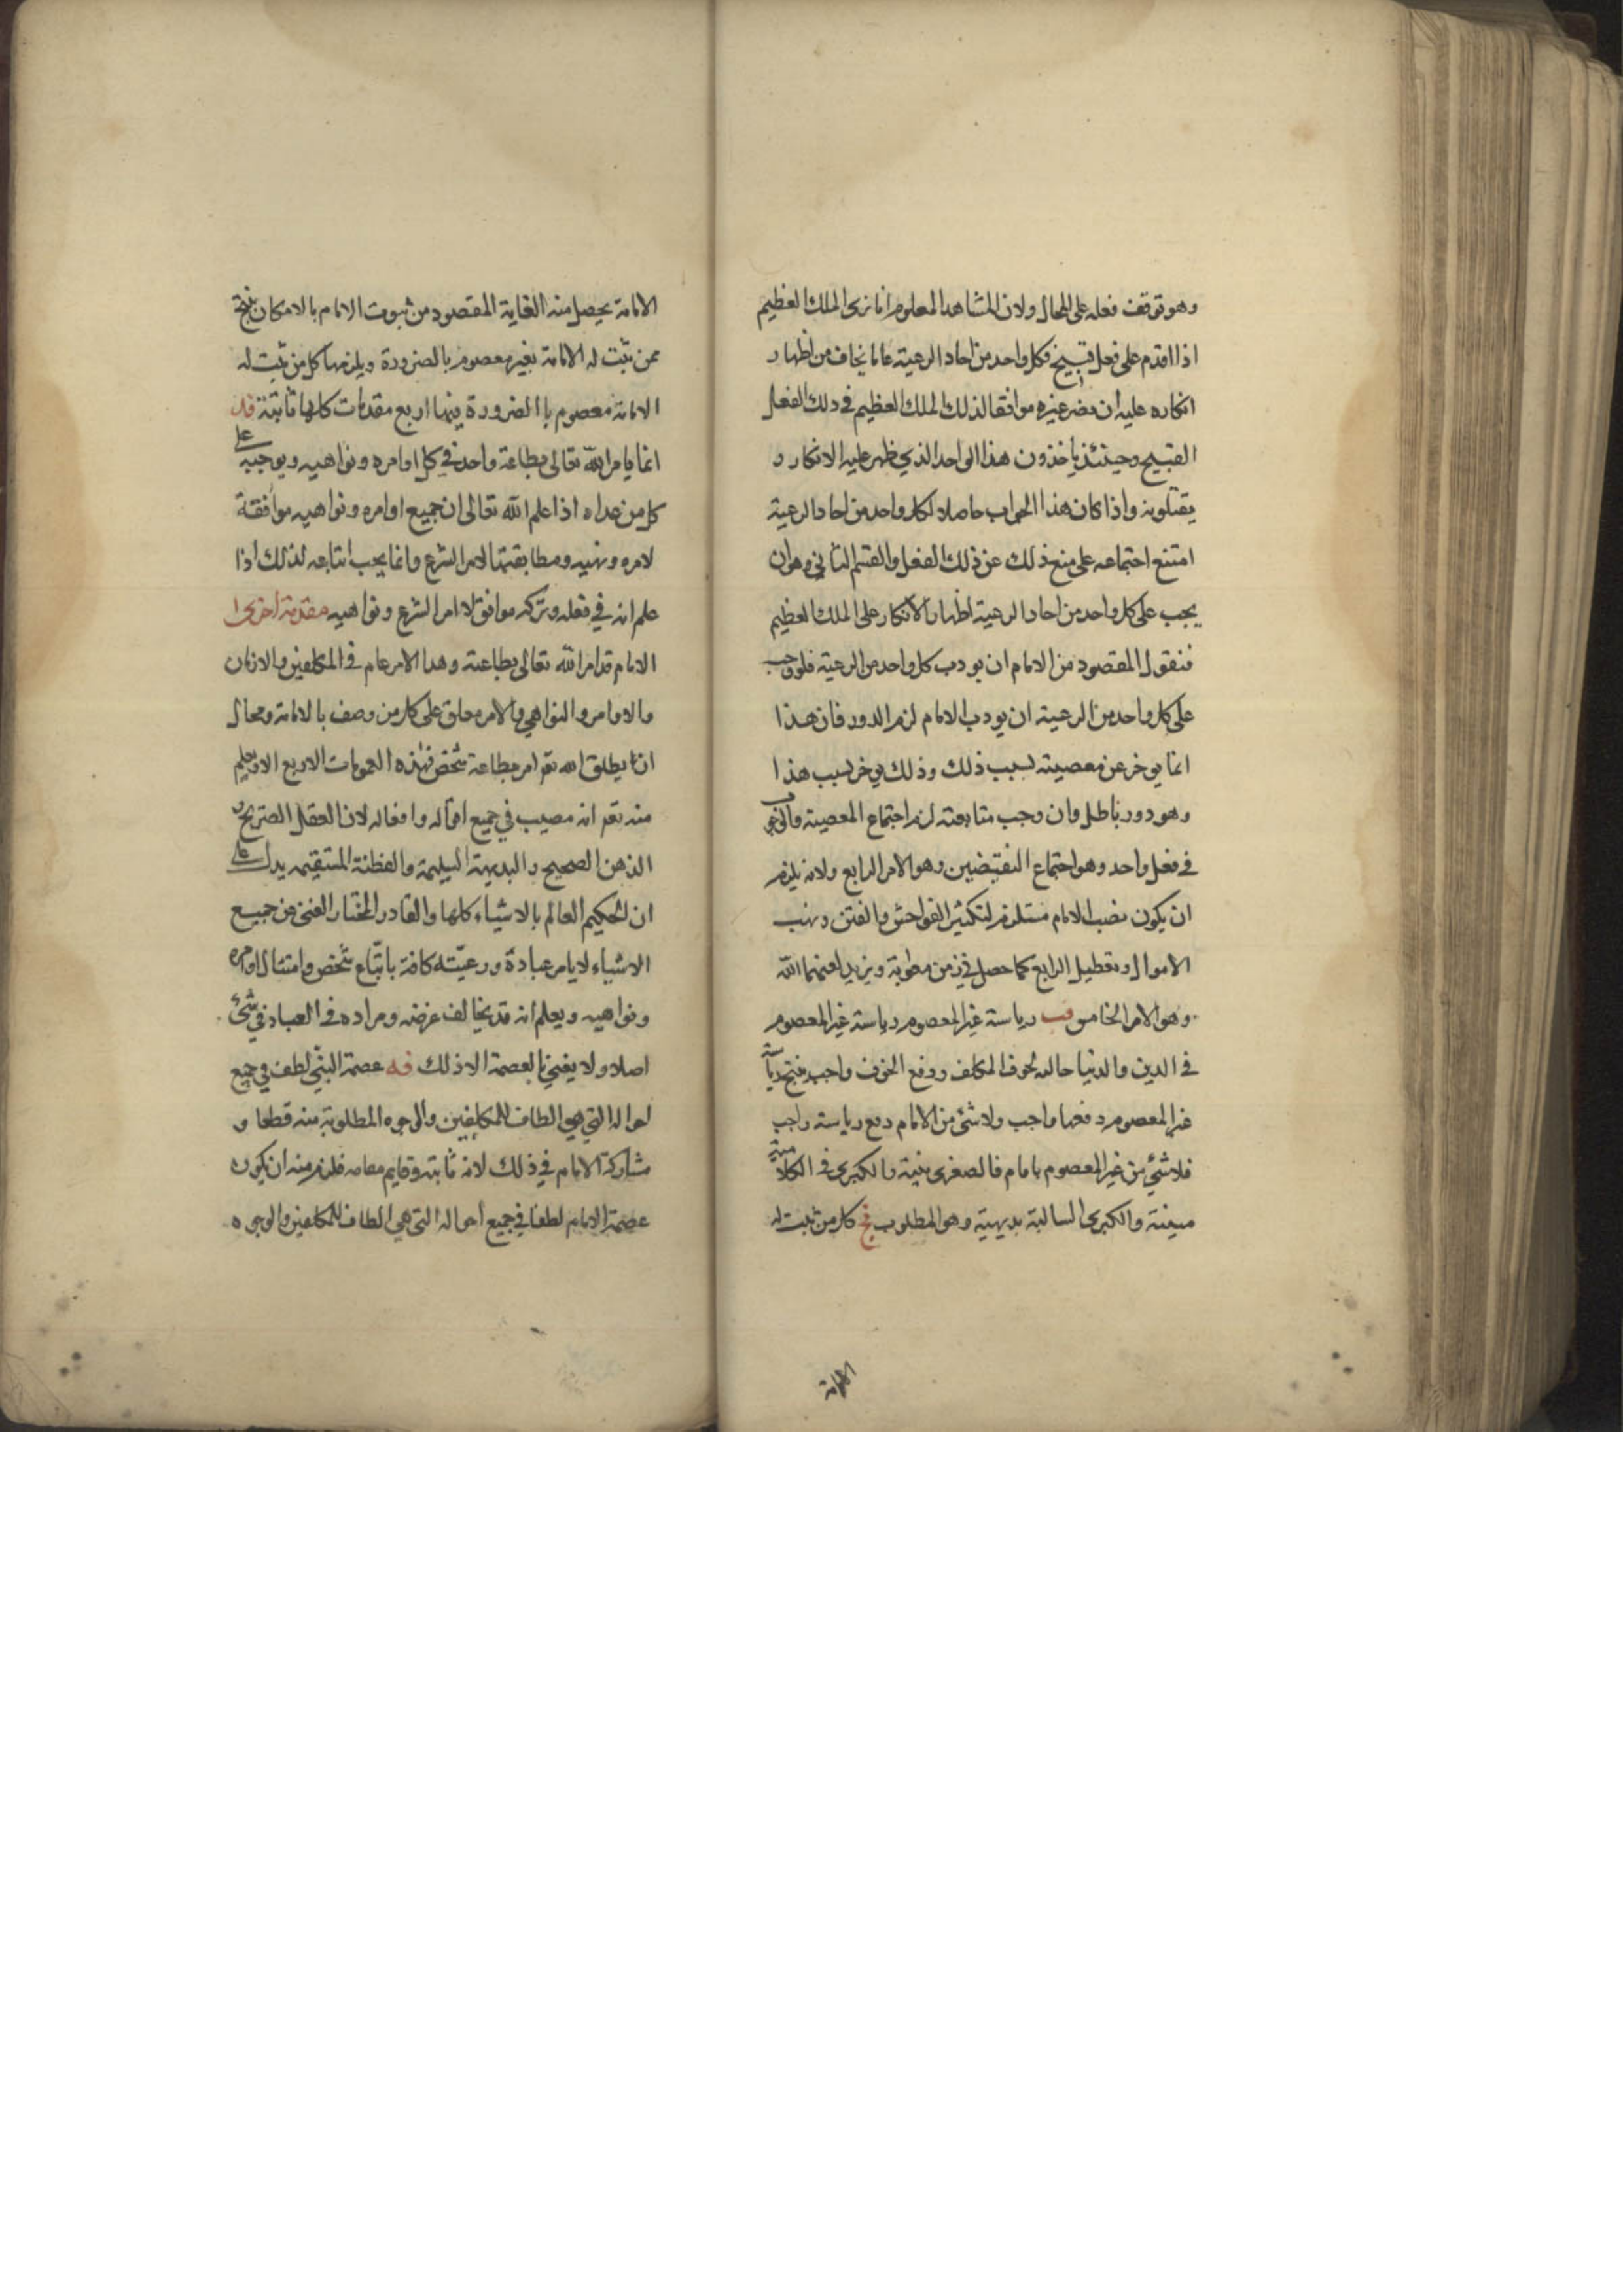 وهو توقف فعله على المحال ولان المشاهد المعلوم انا نرى الملك العظيم
اذا اقدم على فعل قبيح فكل واحد من احاد الرعية عاما يخاف من اظهار
انكاره عليه ان غيره موافقا لذلك الملك العظيم في ذلك الفعل
القبيح وحينئذ ياخذون هذا الواحد الذي ظهر عليه الانكار و
يقتلونه واذا كان هذا الجواب حاصلا لكل واحد من احاد الرعية
امتنع اجتماعه على منع ذلك عن ذلك الفعل والقسم الثاني وهو ان
يجب على كل واحد من احاد الرعية اظهار الانكار على الملك العظيم
فنقول المقصود من الامام ان يودب كل واحد من الرعية فلو وجب
على كل واحد من الرعية ان يودب الامام لزم الدور فان هذا
انما يوخر عن معصيته بسبب ذلك وذلك يوخر بسبب هذا
وهو دور باطل وان وجب متابعته لزم اجتماع المعصية والوجوب
في فعل واحد وهو اجتماع النقيضين وهو الامر الرابع ولانه يلزم
ان يكون نصب الامام مستلزم لتكثير الفواحش والفتن ونهب
الاموال وتعطيل الرابع كما حصل في زمن معوية ويزيد لعنهما الله
وهو الامر الخامس قب رياسة غير المعصوم رياسة غير المعصوم
في الدين والدنيا حاله لخوف المكلف ودفع الخوف واجب ينتج رياسة
غير المعصوم دفعها واجب ولا شئ من الامام دفع رياسته واجب
فلا شئ من غير المعصوم بامام فالصغرى بينة والكبرى في الكلام مبينة
مبينة والكبرى السالبة بديهية وهو المطلوب قج كل من ثبت له
الامامة
الامامة يحصل منه الغاية المقصود من ثبوت الامام بالامكان ينتج
ممن ثبت له الامامة بغير معصوم بالضرورة ويلزمها كل من ثبت له
الامامة معصوم باالضرورة بينها اربع مقدمات كلها ثابتة قد
انما يامر الله تعالى بطاعة واحد في كل اوامره ونواهيه ويوجبه على
كل من عداه اذا علم الله تعالى ان جميع اوامره ونواهيه موافقة
لامره ونهيه ومطابقتها لامر الشرع وانما يجب اتباعه لذلك اذا
علم انه في فعله وتركه موافق لاامر الشرع ونواهيه مقدمة اخرى ا
الامام قد امر الله تعالى بطاعته وهذا الامر عام في المكلفين والازمان
والاوامر والنواهي والامر معلق على كل من وصف بالامامة ومحال
ان يطلق الله تعم امر بطاعة شخص فهذه العمومات الاربع الا ويعلم
منه تعم انه مصيب في جميع اقواله وافعاله لان العقل الصريح و
الذهن الصحيح والبديهة السليمة والفطنة المستقيمه يدل على
ان الحكيم العالم بالاشياء كلها والقادر المختار الغني عن جميع
الاشياء لا يامر عبادة ورعيته كافة باتباع شخص وامتثال اوامره
ونواهيه ويعلم انه قد يخالف غرضه ومراده في العباد في شئ
اصلا ولا يعني بالعصمة الا ذلك قه عصمة النبي لطف في جميع
احواله التي هي الطاف للمكلفين والوجوه المطلوبة منه قطعا و
مشاركة الامام في ذلك لانه ثابته وقايم مقامه فلزم منه ان يكون
عصمة الامام لطفا في جميع احواله التي هي الطاف للمكلفين والوجوه